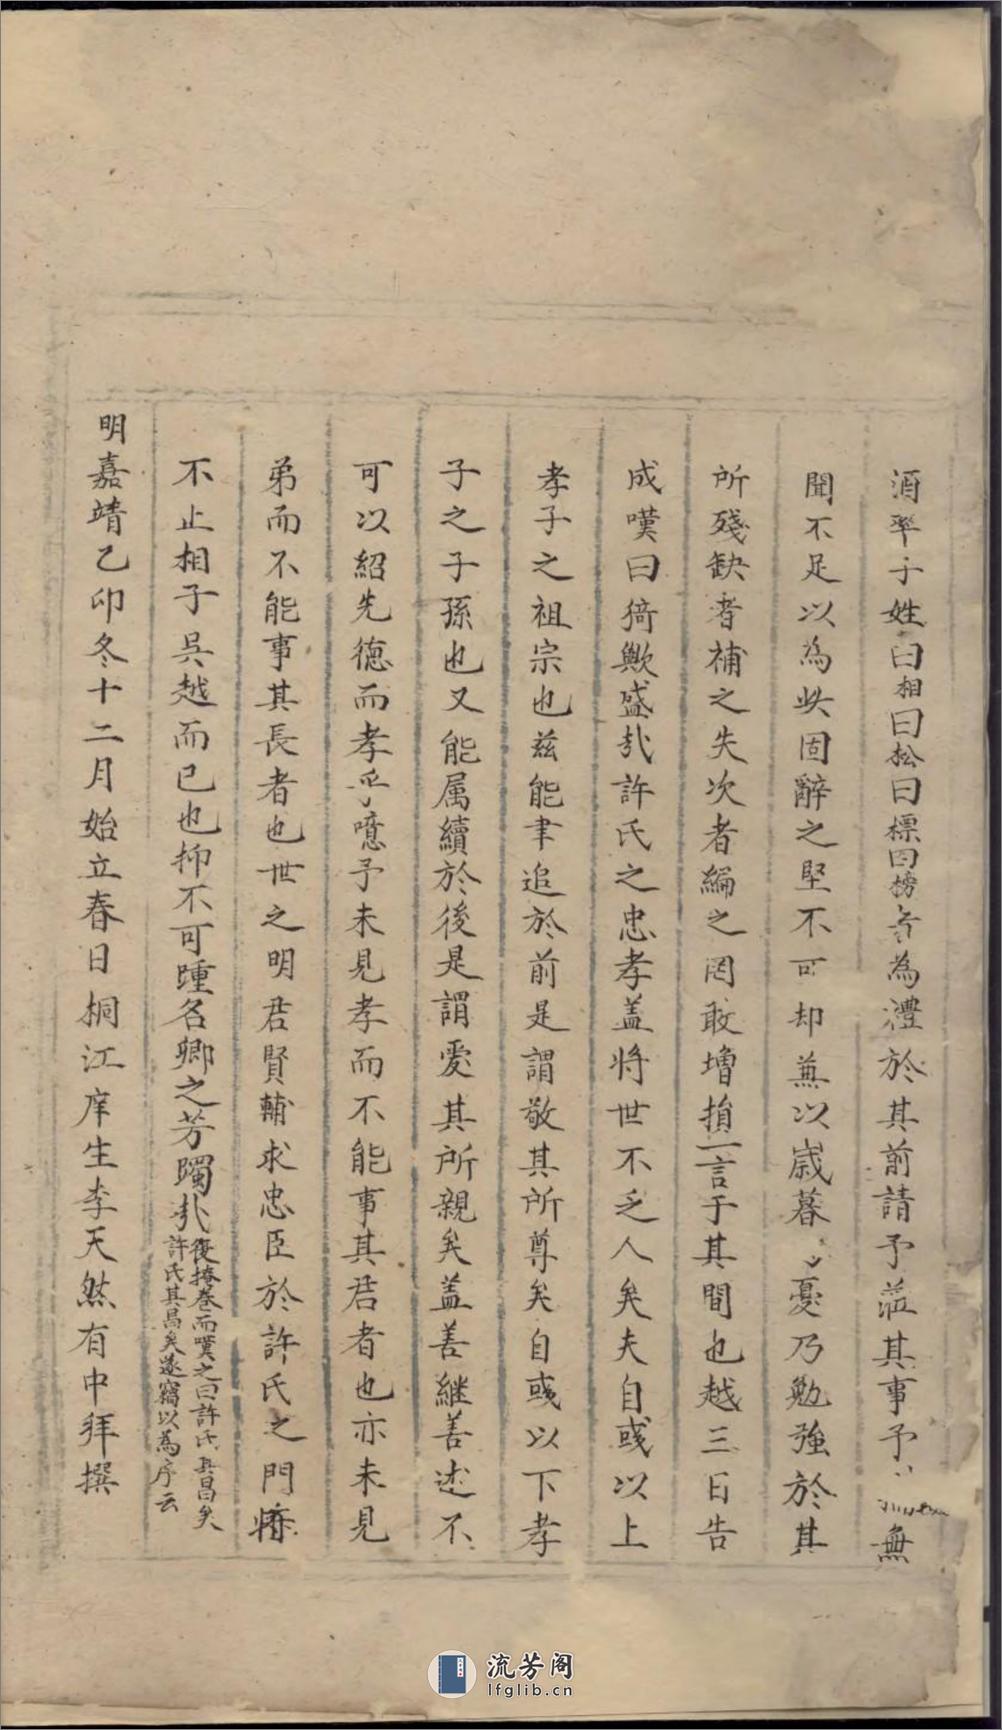 酒率子姓曰相曰松曰標曰榜者為禮於其前請予蒞其事予無
聞不足以為此固辭之堅不可却兼以歲暮憂乃勉強於其
所殘缺者補之失次者編之罔敢增損一言于其間也越三日告
成嘆曰猗歟盛哉許氏之忠孝盖將世不乏人矣夫自彧以上
孝子之祖宗也兹能聿追於前是謂敬其所尊矣自彧以下孝
子之子孫也又能属續於後是謂愛其所親矣盖善継善述不
可以紹先德而孝乎噫予未見孝而不能事其君者也亦未見
弟而不能事其長者也世之明君賢輔求忠臣於許氏之門將
不止相子吳越而已也抑不可踵名卿之芳躅哉復掩巻而嘆之曰許氏其昌矣
許氏其昌矣遂竊以為序云
明嘉靖乙卯冬十二月始立春日桐江庠生李天然有中拜撰
流芳阁
lfglib.cn